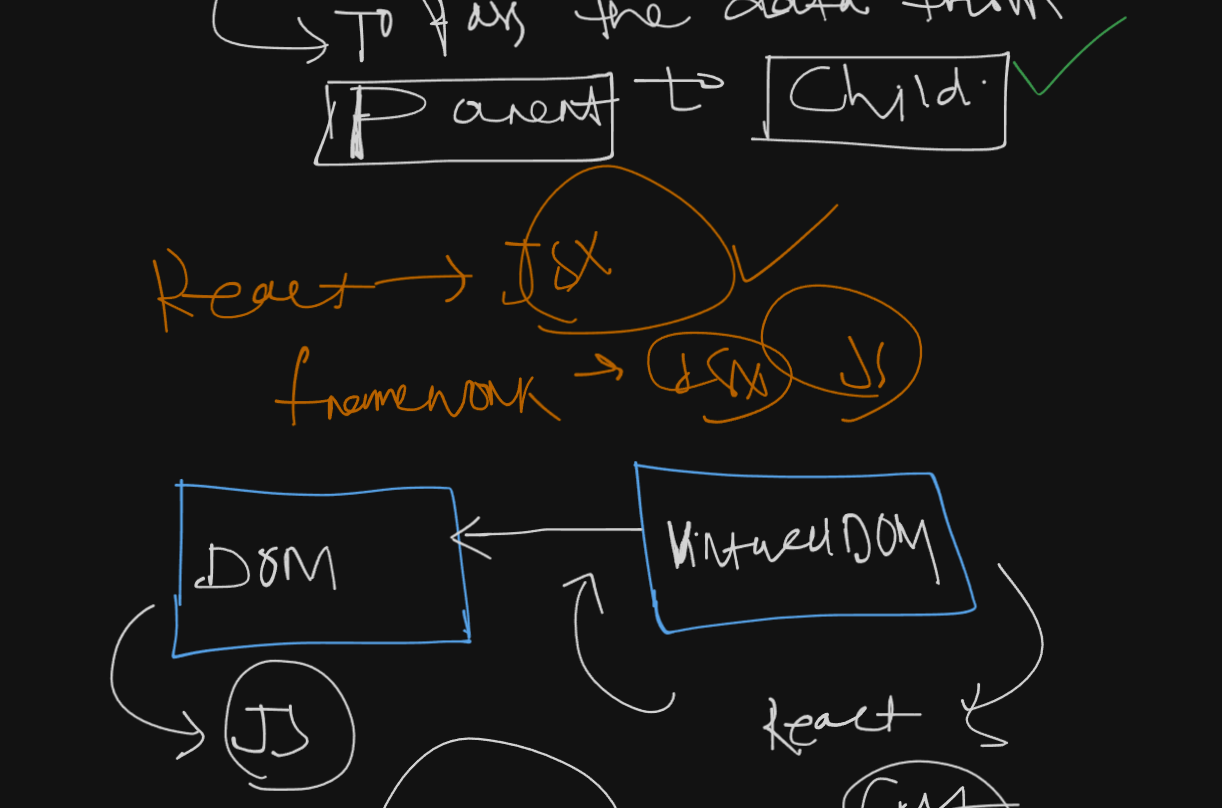 To Pass the data from
Parent to Child.
React → JSX
framework → JSX JS
DOM
Virtual DOM
JS
React